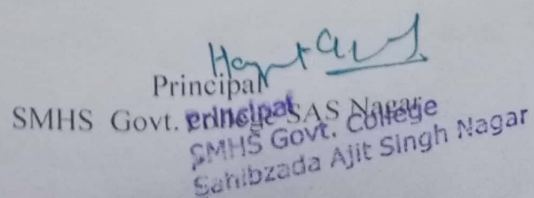 Principal
SMHS Govt. College SAS Nagar
Principal
SMHS Govt. College
Sahibzada Ajit Singh Nagar